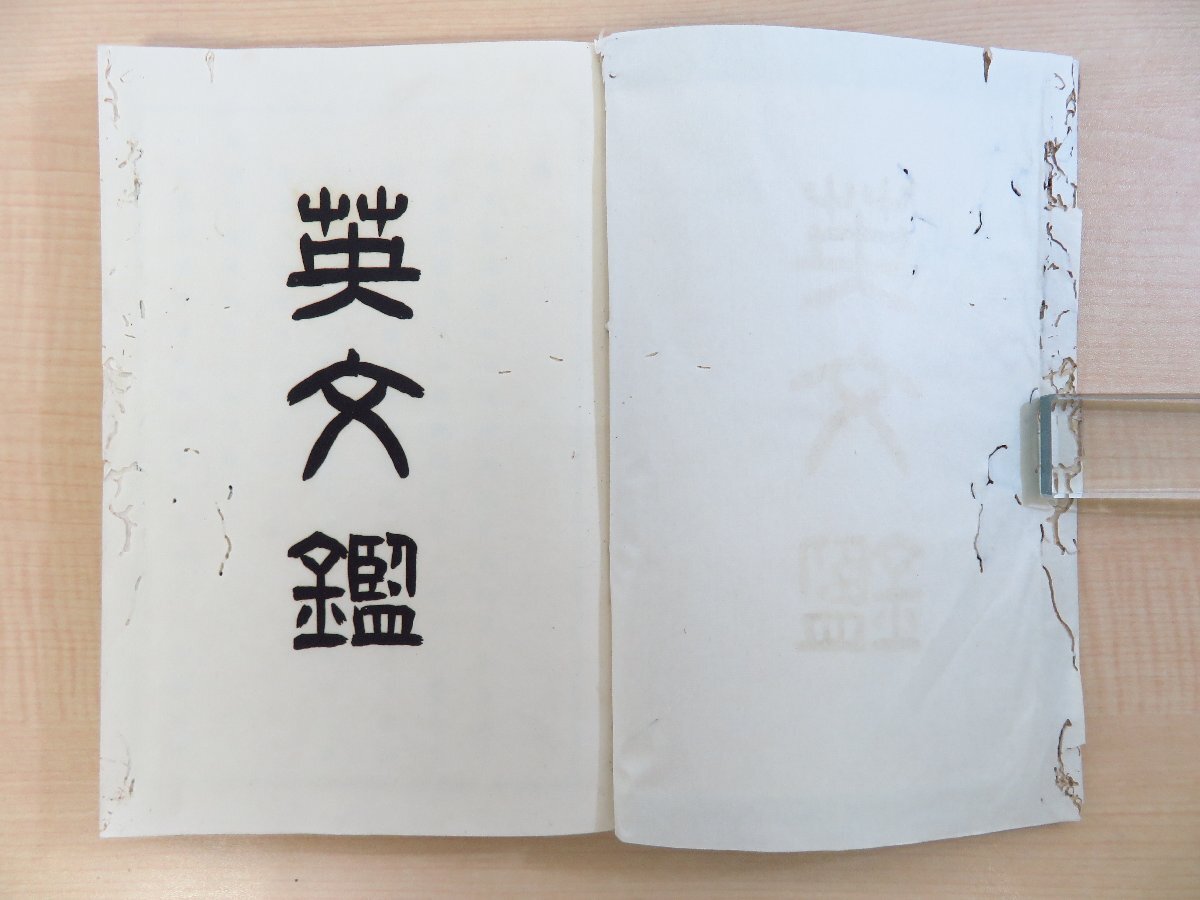 英文鑑